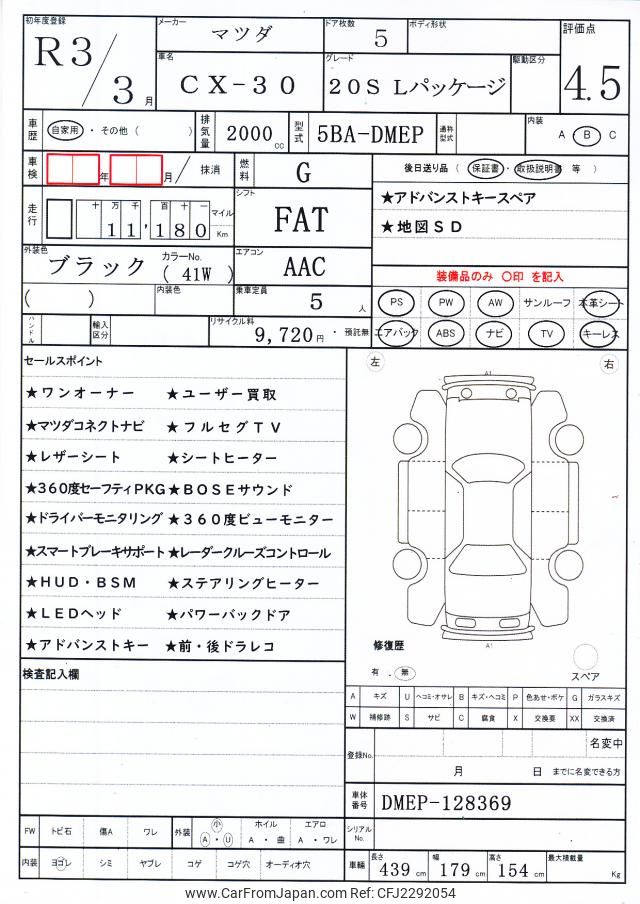 初年度登録 R3/3月
メーカー マツダ
ドア枚数 5
ボディ形状
評価点 4.5
車名 CX-30
グレード 20S Lパッケージ
駆動区分
車歴 自家用・その他( )
排気量 2000cc
型式 5BA-DMEP
通称型式
内装 A B C
車検 年 月/ 抹消
燃料 G
後日送り品(保証書・取扱説明書 等)
★アドバンストキースペア
★地図SD
走行 十万千百十一 11,180 マイル Km
シフト FAT
外装色 ブラック
カラーNo. (41W)
エアコン AAC
装備品のみ 〇印 を記入
( )
内装色
乗車定員 5人
PS PW AW サンルーフ 本革シート
エアバック ABS ナビ TV キーレス
ハンドル
輸入区分
リサイクル料 9,720円・預託無
セールスポイント
★ワンオーナー ★ユーザー買取
★マツダコネクトナビ ★フルセグTV
★レザーシート ★シートヒーター
★360度セーフティPKG★BOSEサウンド
★ドライバーモニタリング★360度ビューモニター
★スマートブレーキサポート★レーダークルーズコントロール
★HUD・BSM ★ステアリングヒーター
★LEDヘッド ★パワーバックドア
★アドバンストキー ★前・後ドラレコ
左 右
A1
A1
修復歴
有・無
スペア
A キズ U ヘコミ・オサレ B キズ・ヘコミ P 色あせ・ボケ G ガラスキズ
W 補修跡 S サビ C 腐食 X 交換要 XX 交換済
検査記入欄
登録No.
名変中
月 日 までに名変できる方
車体番号 DMEP-128369
シリアルNo.
FW トビ石 傷A ワレ 外装 小 A・U ホイル A・曲 エアロ A・ワレ
内装 ヨゴレ シミ ヤブレ コゲ コゲ穴 オーディオ穴
車輛 長さ 439cm 幅 179cm 高さ 154cm 最大積載量 Kg
www.CarFromJapan.com Ref: CFJ2292054